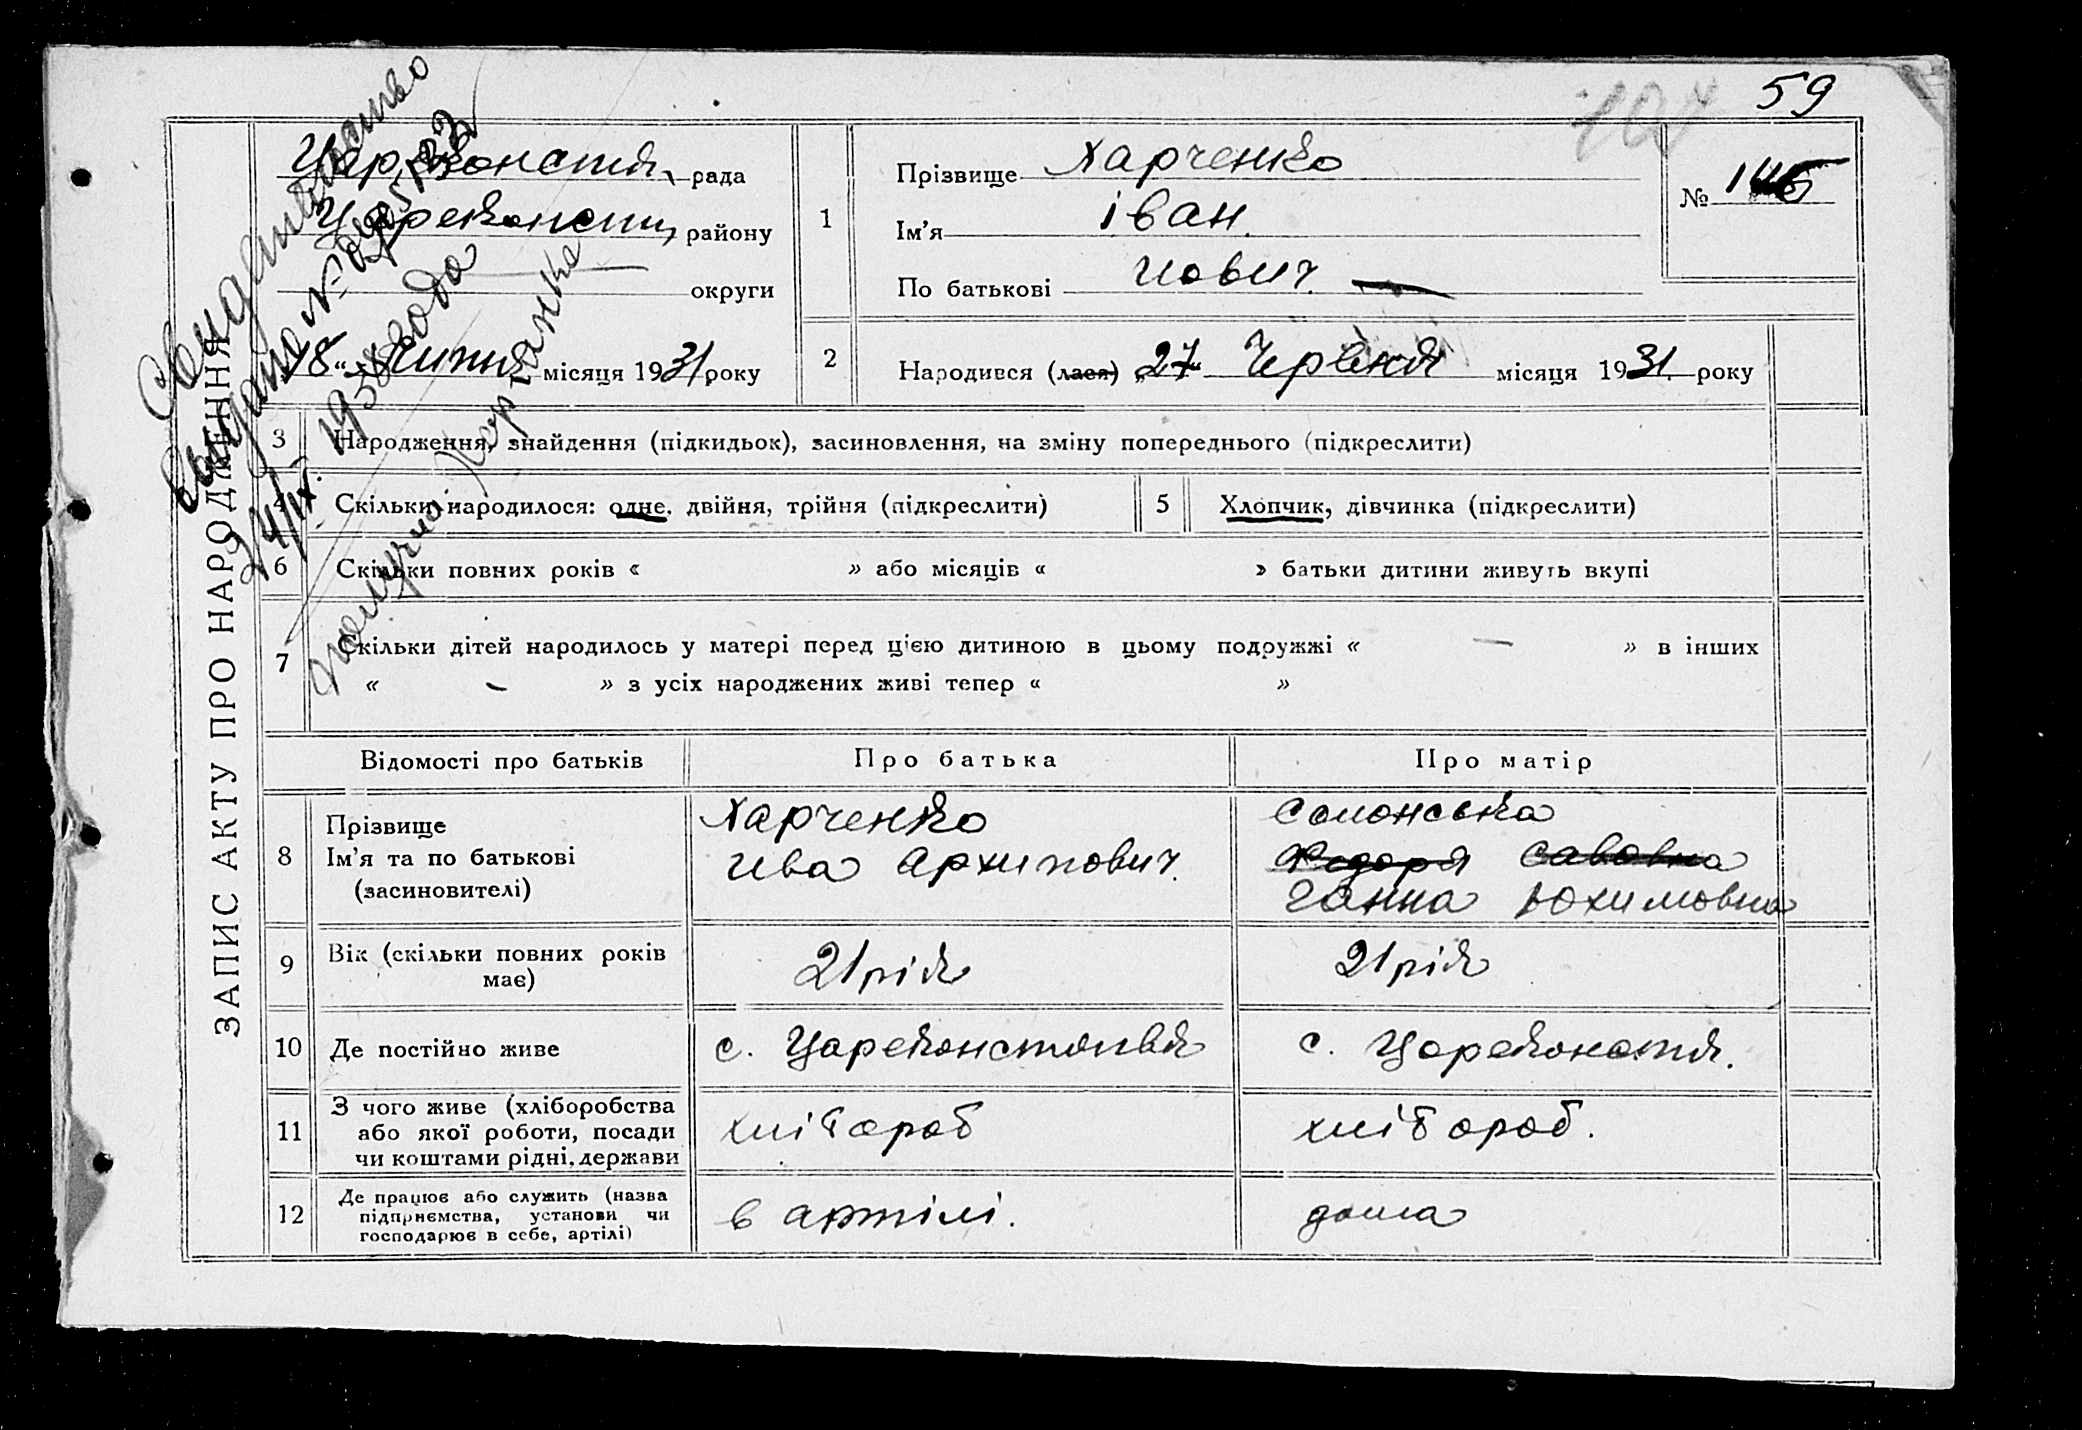 59
124
ЗАПИС АКТУ ПРО НАРОДЖЕННЯ
Свидательство
выдано №
24/IX 1958 года
получил Харченко
Цареконстя, рада
Цареконст, району
округи
18 " Липня місяця 1931 року
1
Прізвище Харченко
Ім'я Іван.
По батькові Иович.
№ 146
2
Народився (лася) „27" Червня місяця 1931 року
3 Народження, знайдення (підкидьок), засиновлення, на зміну попереднього (підкреслити)
4 Скільки народилося: одне, двійня, трійня (підкреслити)
5 Хлопчик, дівчинка (підкреслити)
6 Скільки повних років « » або місяців « » батьки дитини живуть вкупі
7 Скільки дітей народилось у матері перед цією дитиною в цьому подружжі « — » в інших
« - » з усіх народжених живі тепер « »
Відомості про батьків Про батька Про матір
8 Прізвище
Ім'я та по батькові
(засиновителі)
Харченко
Ива Архипович.
Солонська
Федоря Савовна
Ганна Юхимовна
9 Вік (скільки повних років
має)
21 рік
21 рік
10 Де постійно живе
с. Цареконстантя
с. Цареконстя.
11 З чого живе (хліборобства
або якої роботи, посади
чи коштами рідні, держави
хлібороб
хлібороб.
12 Де працює або служить (назва
підприємства, установи чи
господарює в себе, артілі)
в артілі.
дома